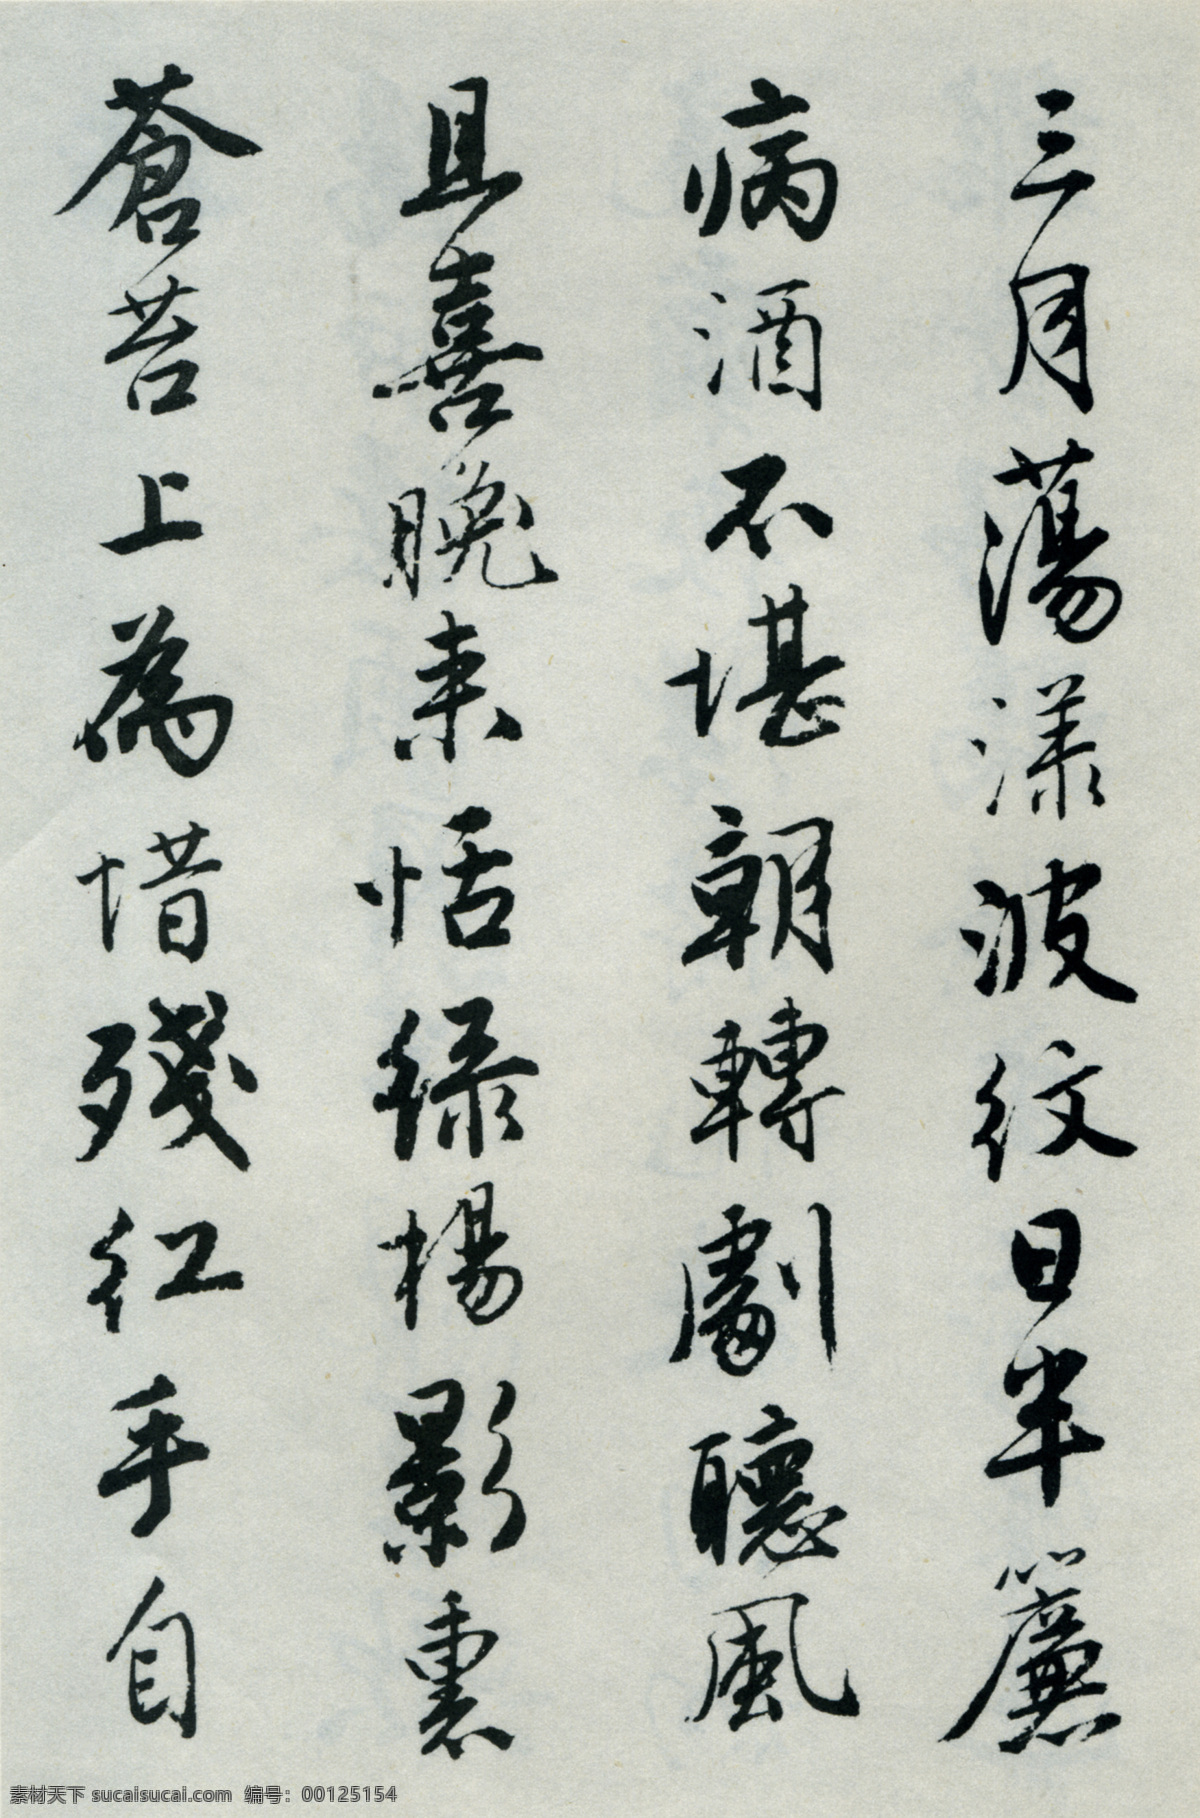 三月蕩漾波紋日半簾
病酒不堪朝轉劇聽風
且喜晚來恬綠楊影裏
蒼苔上為惜殘紅手自
素材天下 sucaisucai.com 编号：00125154